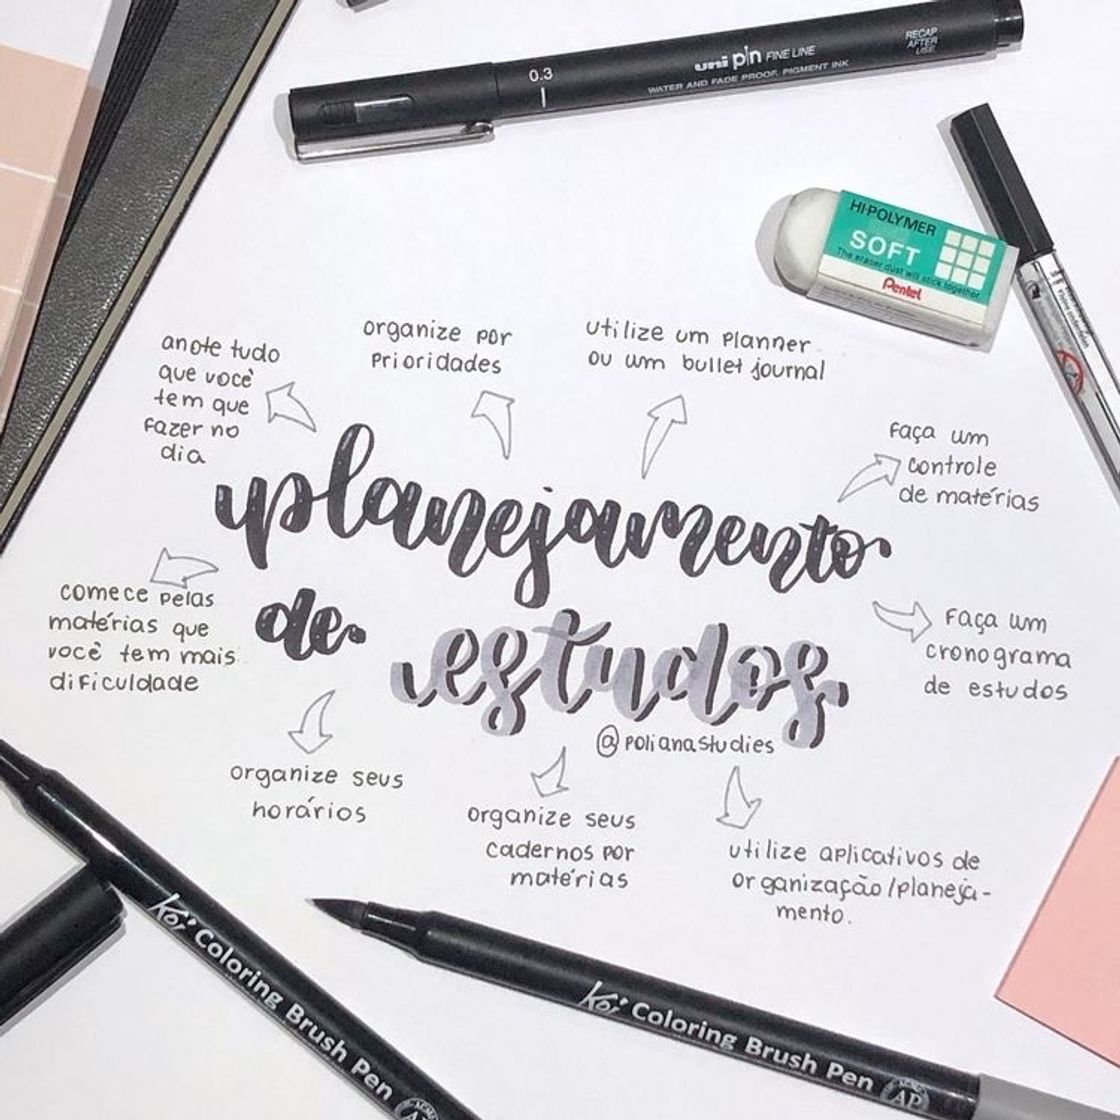 0.3
uni pin FINE LINE
WATER AND FADE PROOF, PIGMENT INK
RECAP
AFTER
USE
HI-POLYMER
SOFT
The eraser dust will stick together
Pentel
anote tudo
que você
tem que
fazer no
dia
organize por
prioridades
utilize um planner
ou um bullet journal
faça um
controle
de matérias
planejamento
de
estudos
@polianastudies
comece pelas
matérias que
você tem mais
dificuldade
faça um
cronograma
de estudos
organize seus
horários
organize seus
cadernos por
matérias
utilize aplicativos de
organização/planeja-
mento.
Koi Coloring Brush Pen
Koi Coloring Brush Pen
AP